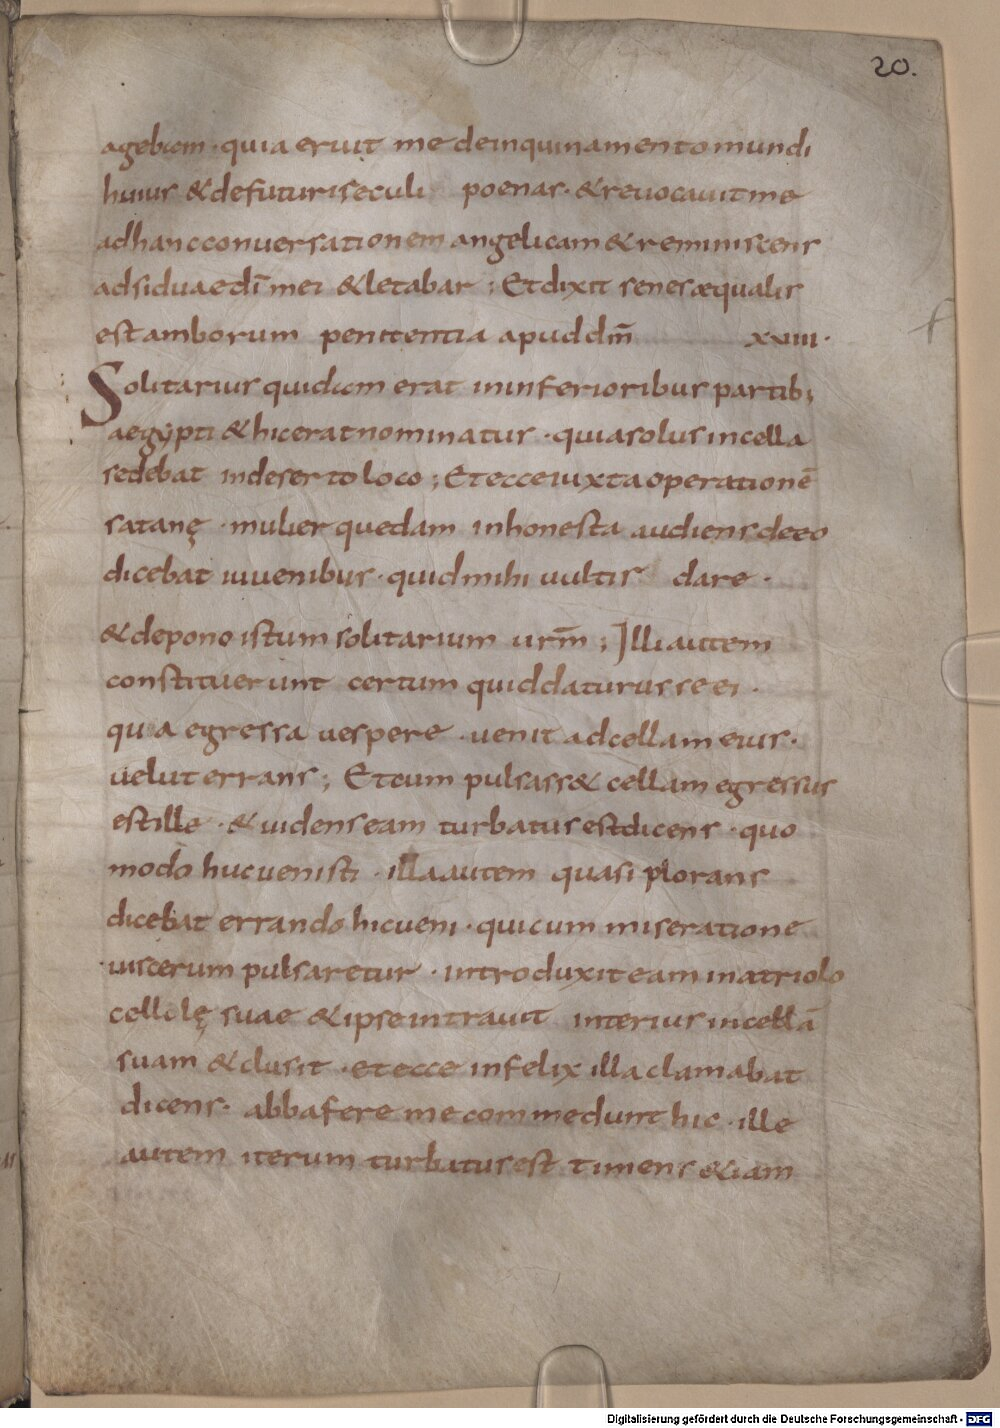 20.
agebam · quia eruit me deinquinamento mundi
huius & defuturi seculi poenas · & reuocauit me
adhanc conuersationem angelicam & reminiscens
adsiduae dī mei & letabar ; Et dixit senes æqualis
est amborum penitentia apud dm̄ xxiii ·
Solitarius quidam erat ininferioribus partib;
aegypti & hic erat nominatus · quia solus incella
sedebat indeserto loco ; Et ecce iuxta operationē
satanę · mulier quedam inhonesta audiens deeo
dicebat iuuenibus · quid mihi uultis dare ·
& depono istum solitarium urm̄ ; Illi autem
constituerunt certum quid daturus se ei ·
qua egressa uespere · uenit adcellam eius ·
uelut errans ; Et cum pulsass& cellam egressus
est ille · & uidens eam turbatus est dicens · quo
modo huc uenisti · illa autem quasi plorans
dicebat errando hic ueni · qui cum miseratione
uiscerum pulsaretur · introduxit eam inatriolo
cellolę suae & ipse intrauit interius incellā
suam & clusit · et ecce infelix illa clamabat
dicens · abba fere me commedunt hic · ille
autem iterum turbatus est timens & iam
Digitalisierung gefördert durch die Deutsche Forschungsgemeinschaft - DFG